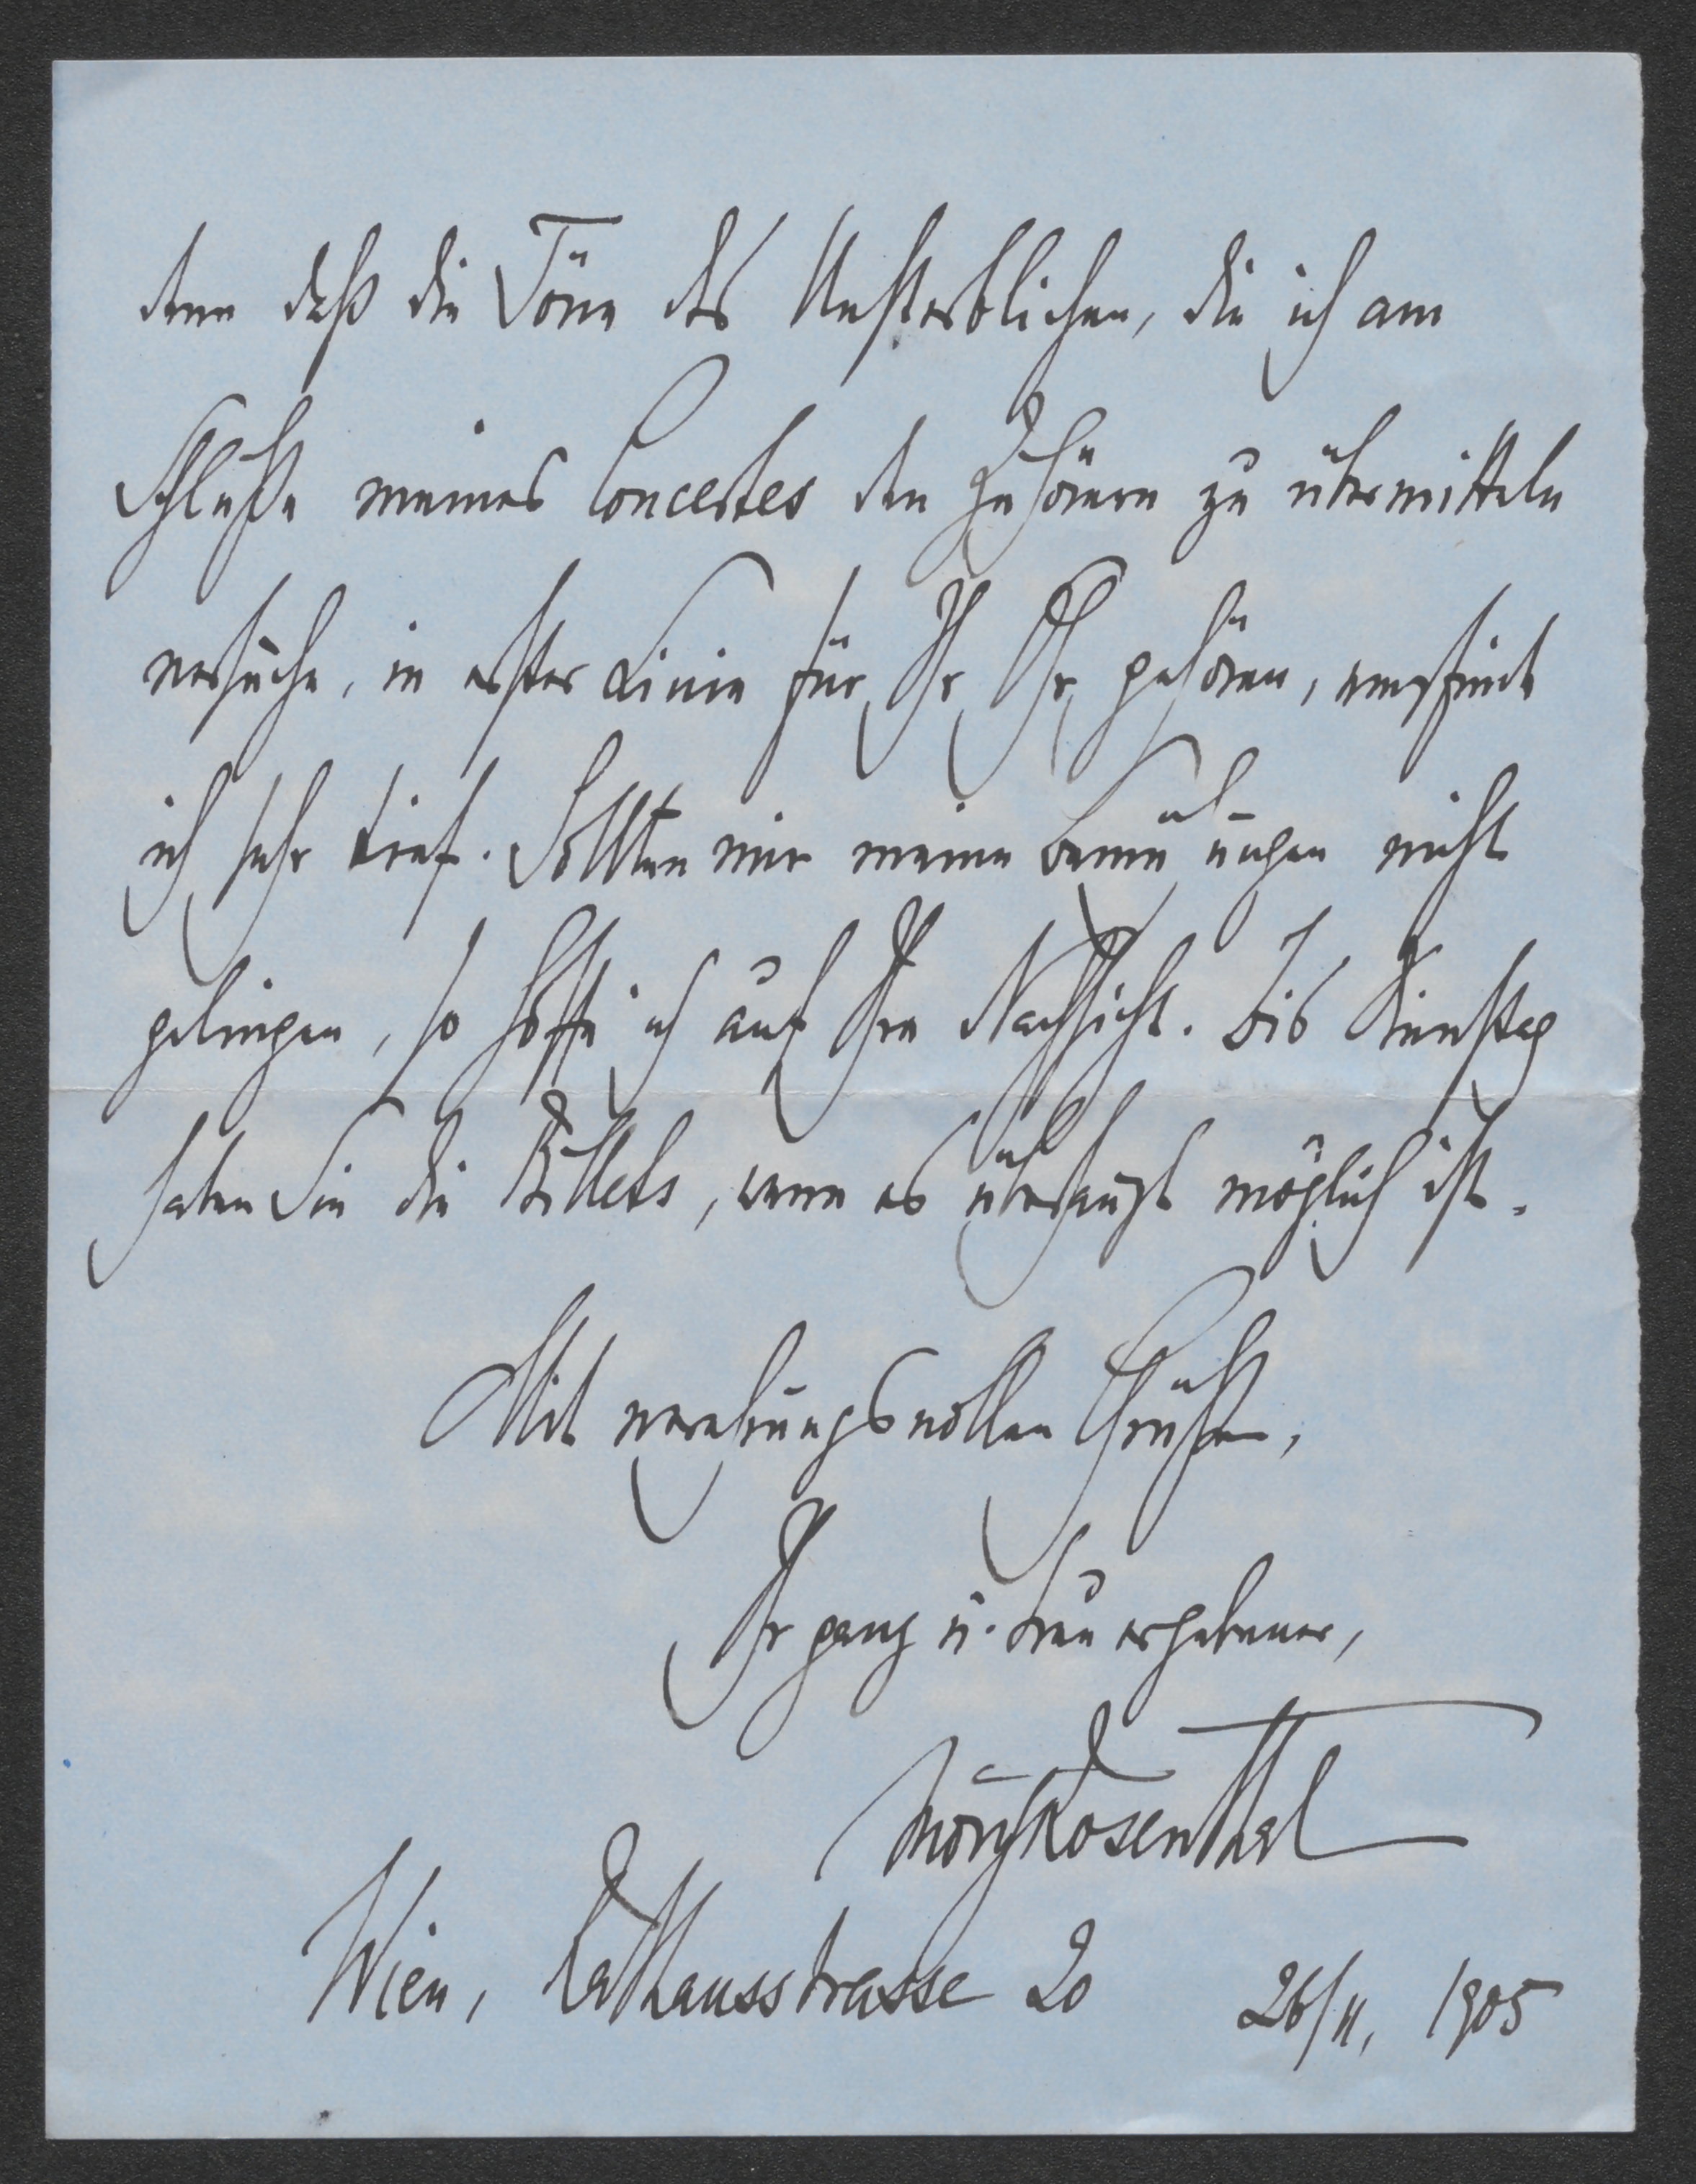 denn daß die Töne des Unsterblichen, die ich am
Schluße meines Concertes den Zuhörern zu übermitteln
versuche, in erster Linie für Ihr Ohr gehören, empfinde
ich sehr tief. Sollten mir meine Bemühungen nicht
gelingen, so hoffe ich auf Ihre Nachsicht. Bis Dienstag
haben Sie die Billets, wenn es überhaupt möglich ist.
Mit verehrungsvollen Grüßen,
Ihr ganz u. treu ergebener,
Moriz Rosenthal
Wien, Rathausstrasse 20 26/II, 1905